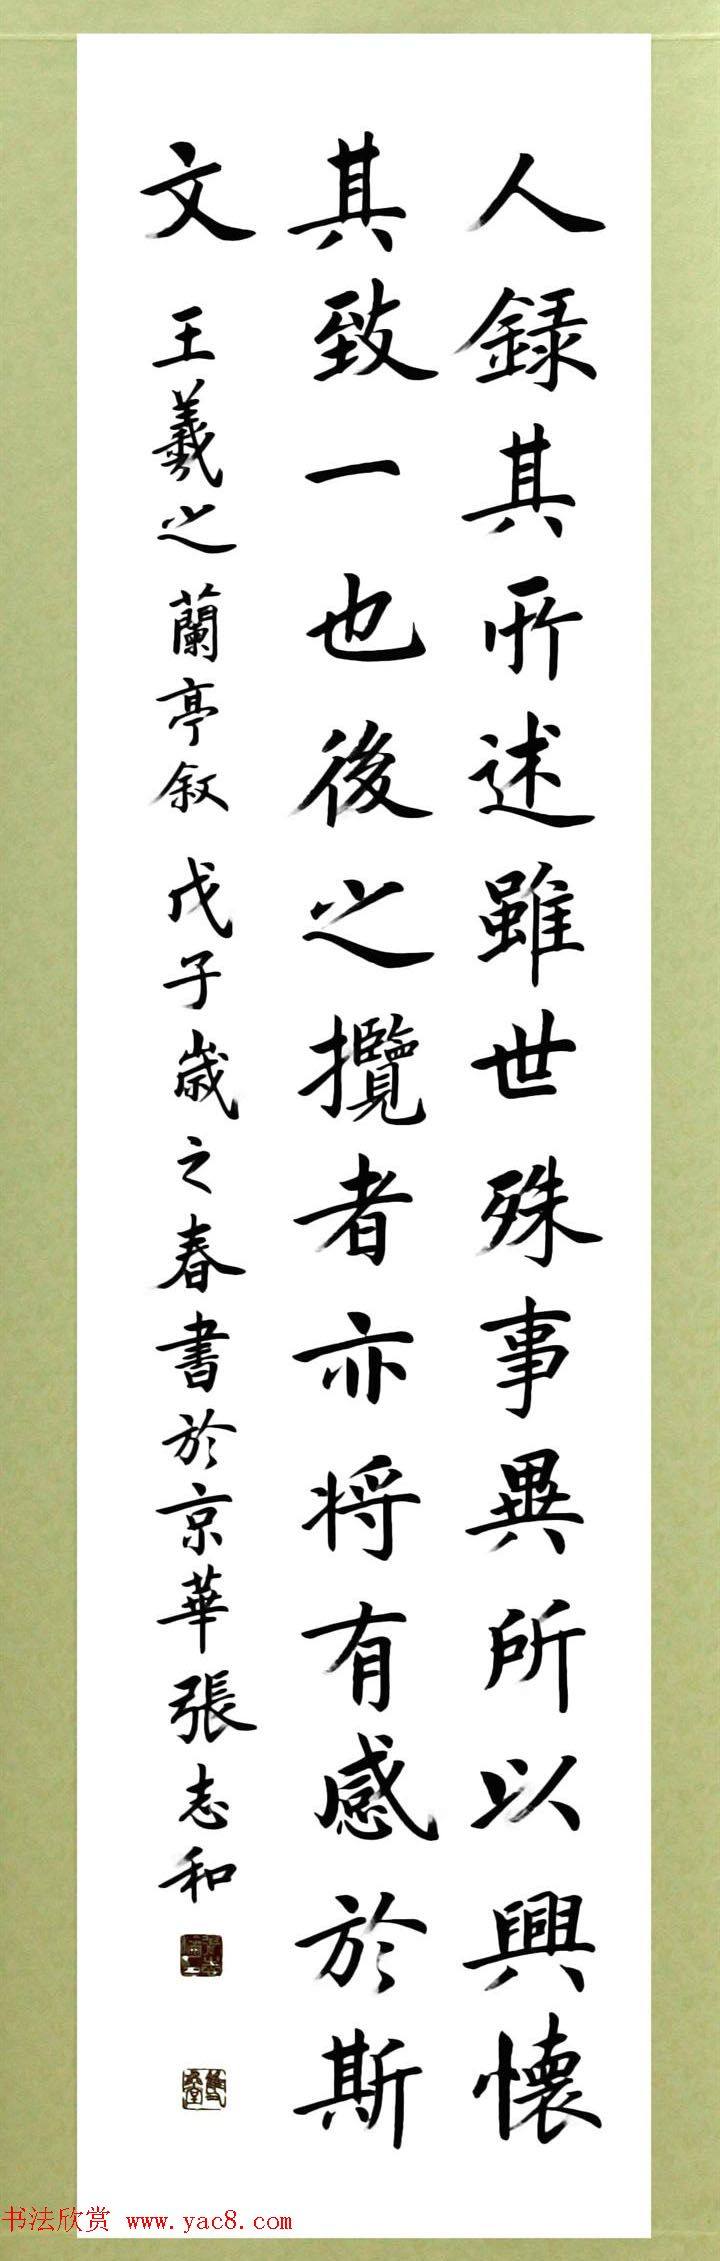 人錄其所述雖世殊事異所以興懷
其致一也後之攬者亦将有感於斯
文
王羲之蘭亭敘戊子歲之春書於京華張志和
书法欣赏 www.yac8.com